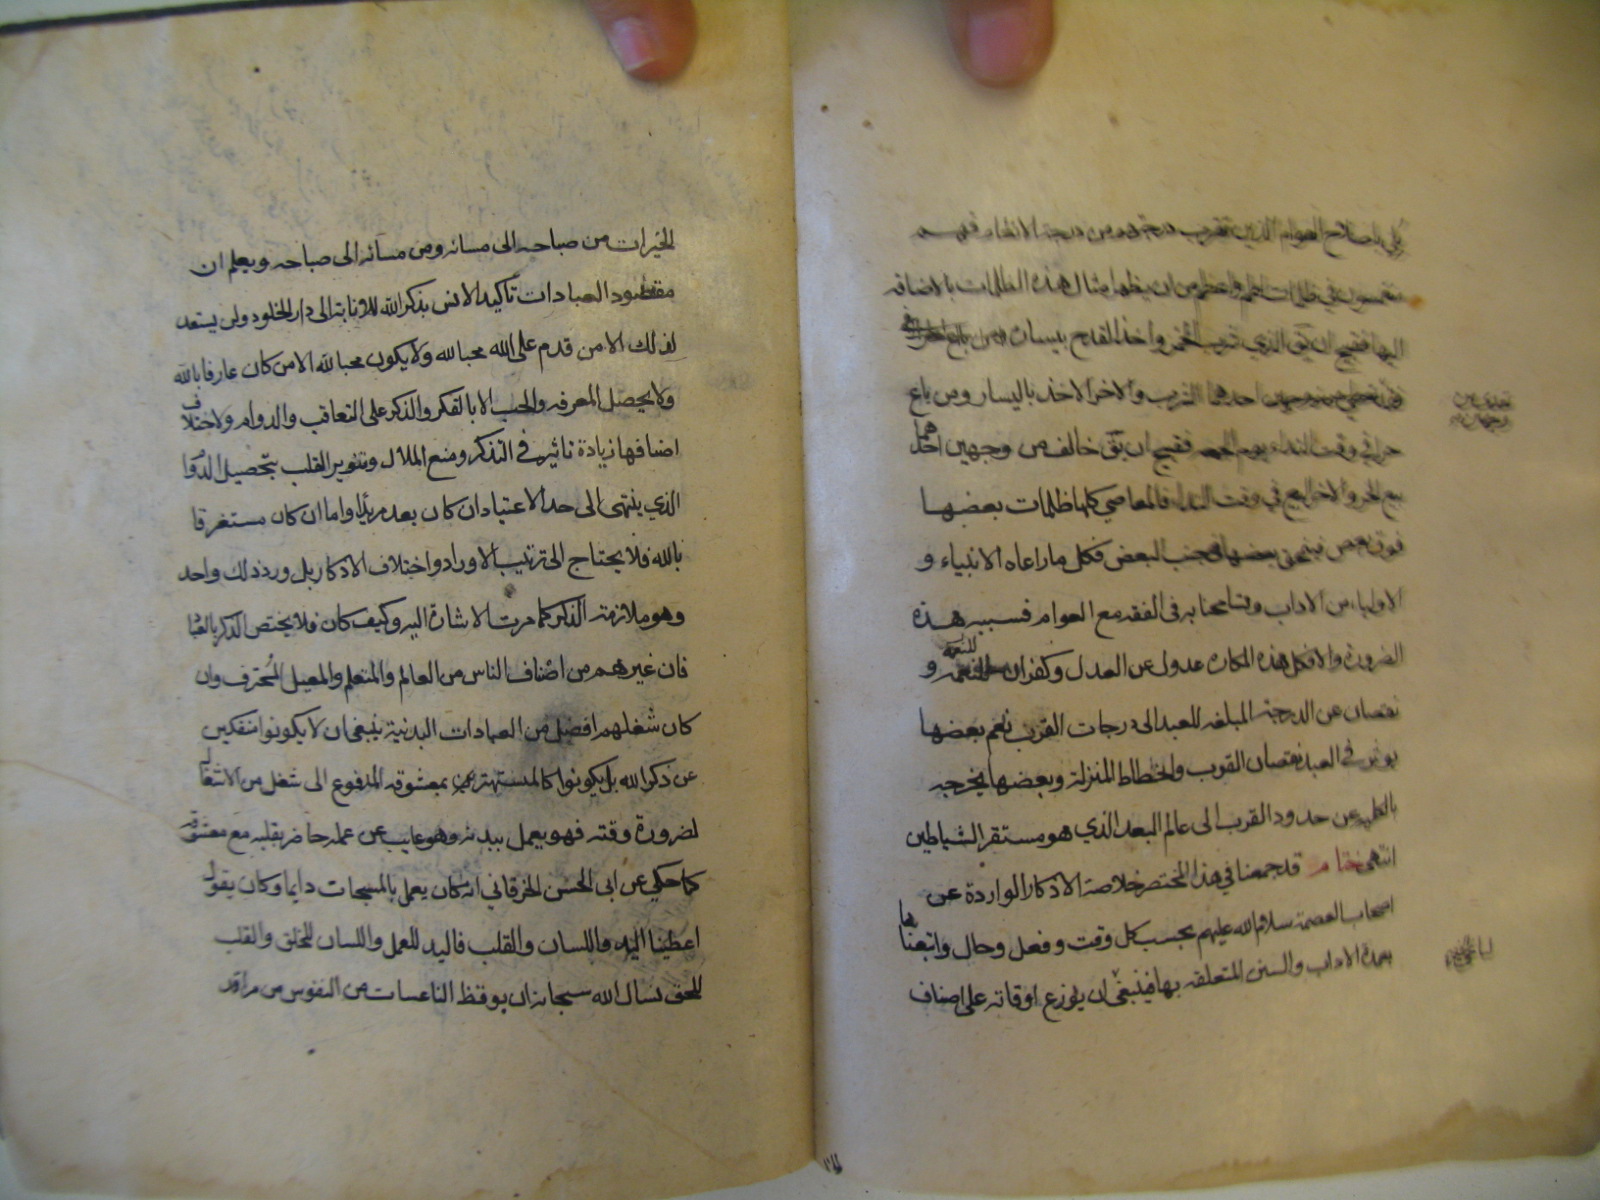 بلي باصلاح العوام الذين تقرب درجتهم من درجة الانعام فهم
منغمسون في ظلمات اطم واعظم من ان يظهر امثال هذه الظلمات بالاضافة
اليها فقبيح ان يق الذي شرب الخمر واخذ القدح بيساره
احدهما الشرب والاخر الاخذ باليسار ومن باع
حرا في وقت النداء يوم الجمعه فقبيح ان يق خالف من وجهين احدهما
بيع الحر والاخر البيع في وقت النداء فالمعاصي كلها ظلمات بعضها
فوق بعض فينمحق بعضها في جنب البعض فكل ما راعاه الانبياء و
الاولياء من الاداب وتسامحنا به في الفقه مع العوام فسببه هذه
الضرورة والا فكل هذه المكاره عدول عن العدل وكفران للنعمة و
نقصان عن الدرجة المبلغه للعبد الى درجات القرب نعم بعضها
يوثر في العبد نقصان القرب وانحطاط المنزلة وبعضها يخرجه
بالكليه عن حدود القرب الى عالم البعد الذي هو مستقر الشياطين
انتهى ختام قد جمعنا في هذا المختصر خلاصة الاذكار الواردة عن
اصحاب العصمة سلام الله عليهم بحسب كل وقت وفعل وحال واتبعناها
بعمدة الاداب والسنن المتعلقه بها فينبغي ان يوزع اوقاته على اصناف
الخيرات من صباحه الى مسائه ومن مسائه الى صباحه ويعلم ان
مقصود العبادات تاكيد الانس بذكر الله للانابة الى دار الخلود ولن يسعد
لذلك الا من قدم على الله محبا لله ولا يكون محبا لله الا من كان عارفا بالله
ولا يحصل المعرفه والحب الا بالفكر والذكر على التعاقب والدوام ولاختلاف
اضافها زيادة تاثير في التذكر ومنع الملال وتنوير القلب بتحصيل الدوا
الذي ينتهى الى حد الاعتياد ان كان بعد مريدا واما ان كان مستغرقا
بالله فلا يحتاج الى ترتيب الاوراد واختلاف الاذكار بل ورد ذلك واحد
وهو ملازمة الذكر كما مرت الاشارة اليه وكيف كان فلا يختص الذكر بالعبا
فان غيرهم من اصناف الناس من العالم والمتعلم والمعيل المحترف وان
كان شغلهم افضل من العبادات البدنية ينبغي ان لا يكونوا منفكين
عن ذكر الله بل يكونوا كالمستهترين بمعشوقه المدفوع الى شغل من الاشغال
لضرورة وقته فهو يعمل ببدنه وهو غايب عن عمله حاضر بقلبه مع معشوقه
كما حكي عن ابى الحسن الخرقاني انه كان يعمل بالمسحات دايما وكان يقول
اعطينا اليد واللسان والقلب فاليد للعمل واللسان للخلق والقلب
للحق نسال الله سبحانه ان يوقظ الناعسات من النفوس من مراقد